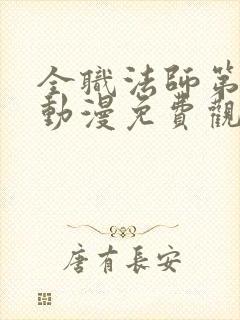 全職法師第
動漫免費觀
唐有長安